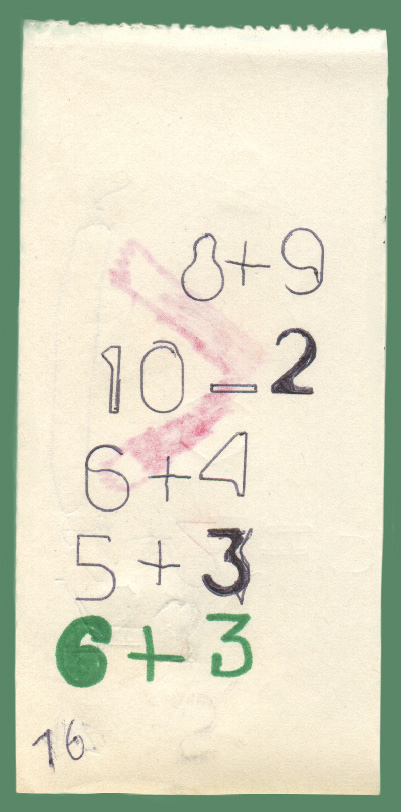 8+9
10-2
6+4
5+3
6+3
16